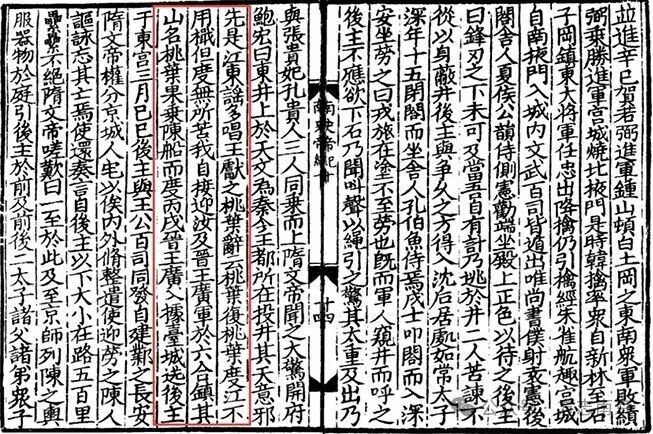 並進辛巳賀若弼進軍鍾山頓白土岡之東南衆軍敗績
弼乘勝進軍宮城燒北掖門是時韓擒率衆自新林至石
子岡鎮東大將軍任忠出降擒仍引擒經朱雀航趣宮城
自南掖門入城內文武百司皆遁出唯尚書僕射袁憲後
閤舍人夏侯公韻侍側憲勸端坐殿上正色以待之後主
曰鋒刃之下未可及當吾自有計乃逃於井二人苦諫不
從以身蔽井後主與爭久之方得入沈后居處如常太子
深年十五閉閤而坐舍人孔伯魚侍焉戍士叩閤而入深
安坐勞之曰戎旅在塗不至勞也既而軍人窺井而呼之
後主不應欲下石乃聞叫聲以繩引之驚其太重及出乃
南史帝紀
廿四
與張貴妃孔貴人三人同乘而上隋文帝聞之大驚開府
鮑宏曰東井上於天文為秦今王都所在投井其天意邪
先是江東謠多唱王獻之桃葉辭云桃葉復桃葉度江不
用檝但度無所苦我自接迎汝及晉王廣軍於六合鎮其
山名桃葉果乘陳船而度丙戌晉王廣入據臺城送後主
于東宮三月己巳後主與王公百司同發自建鄴之長安
隋文帝權分京城人宅以俟內外脩整遣使迎勞之陳人
謳詠忘其亡焉使還奏言自後主以下大小在路五百里
纍纍不絕隋文帝嗟歎曰一至於此及至京師列陳之輿
服器物於庭引後主於前及前後二太子諸父諸弟衆子